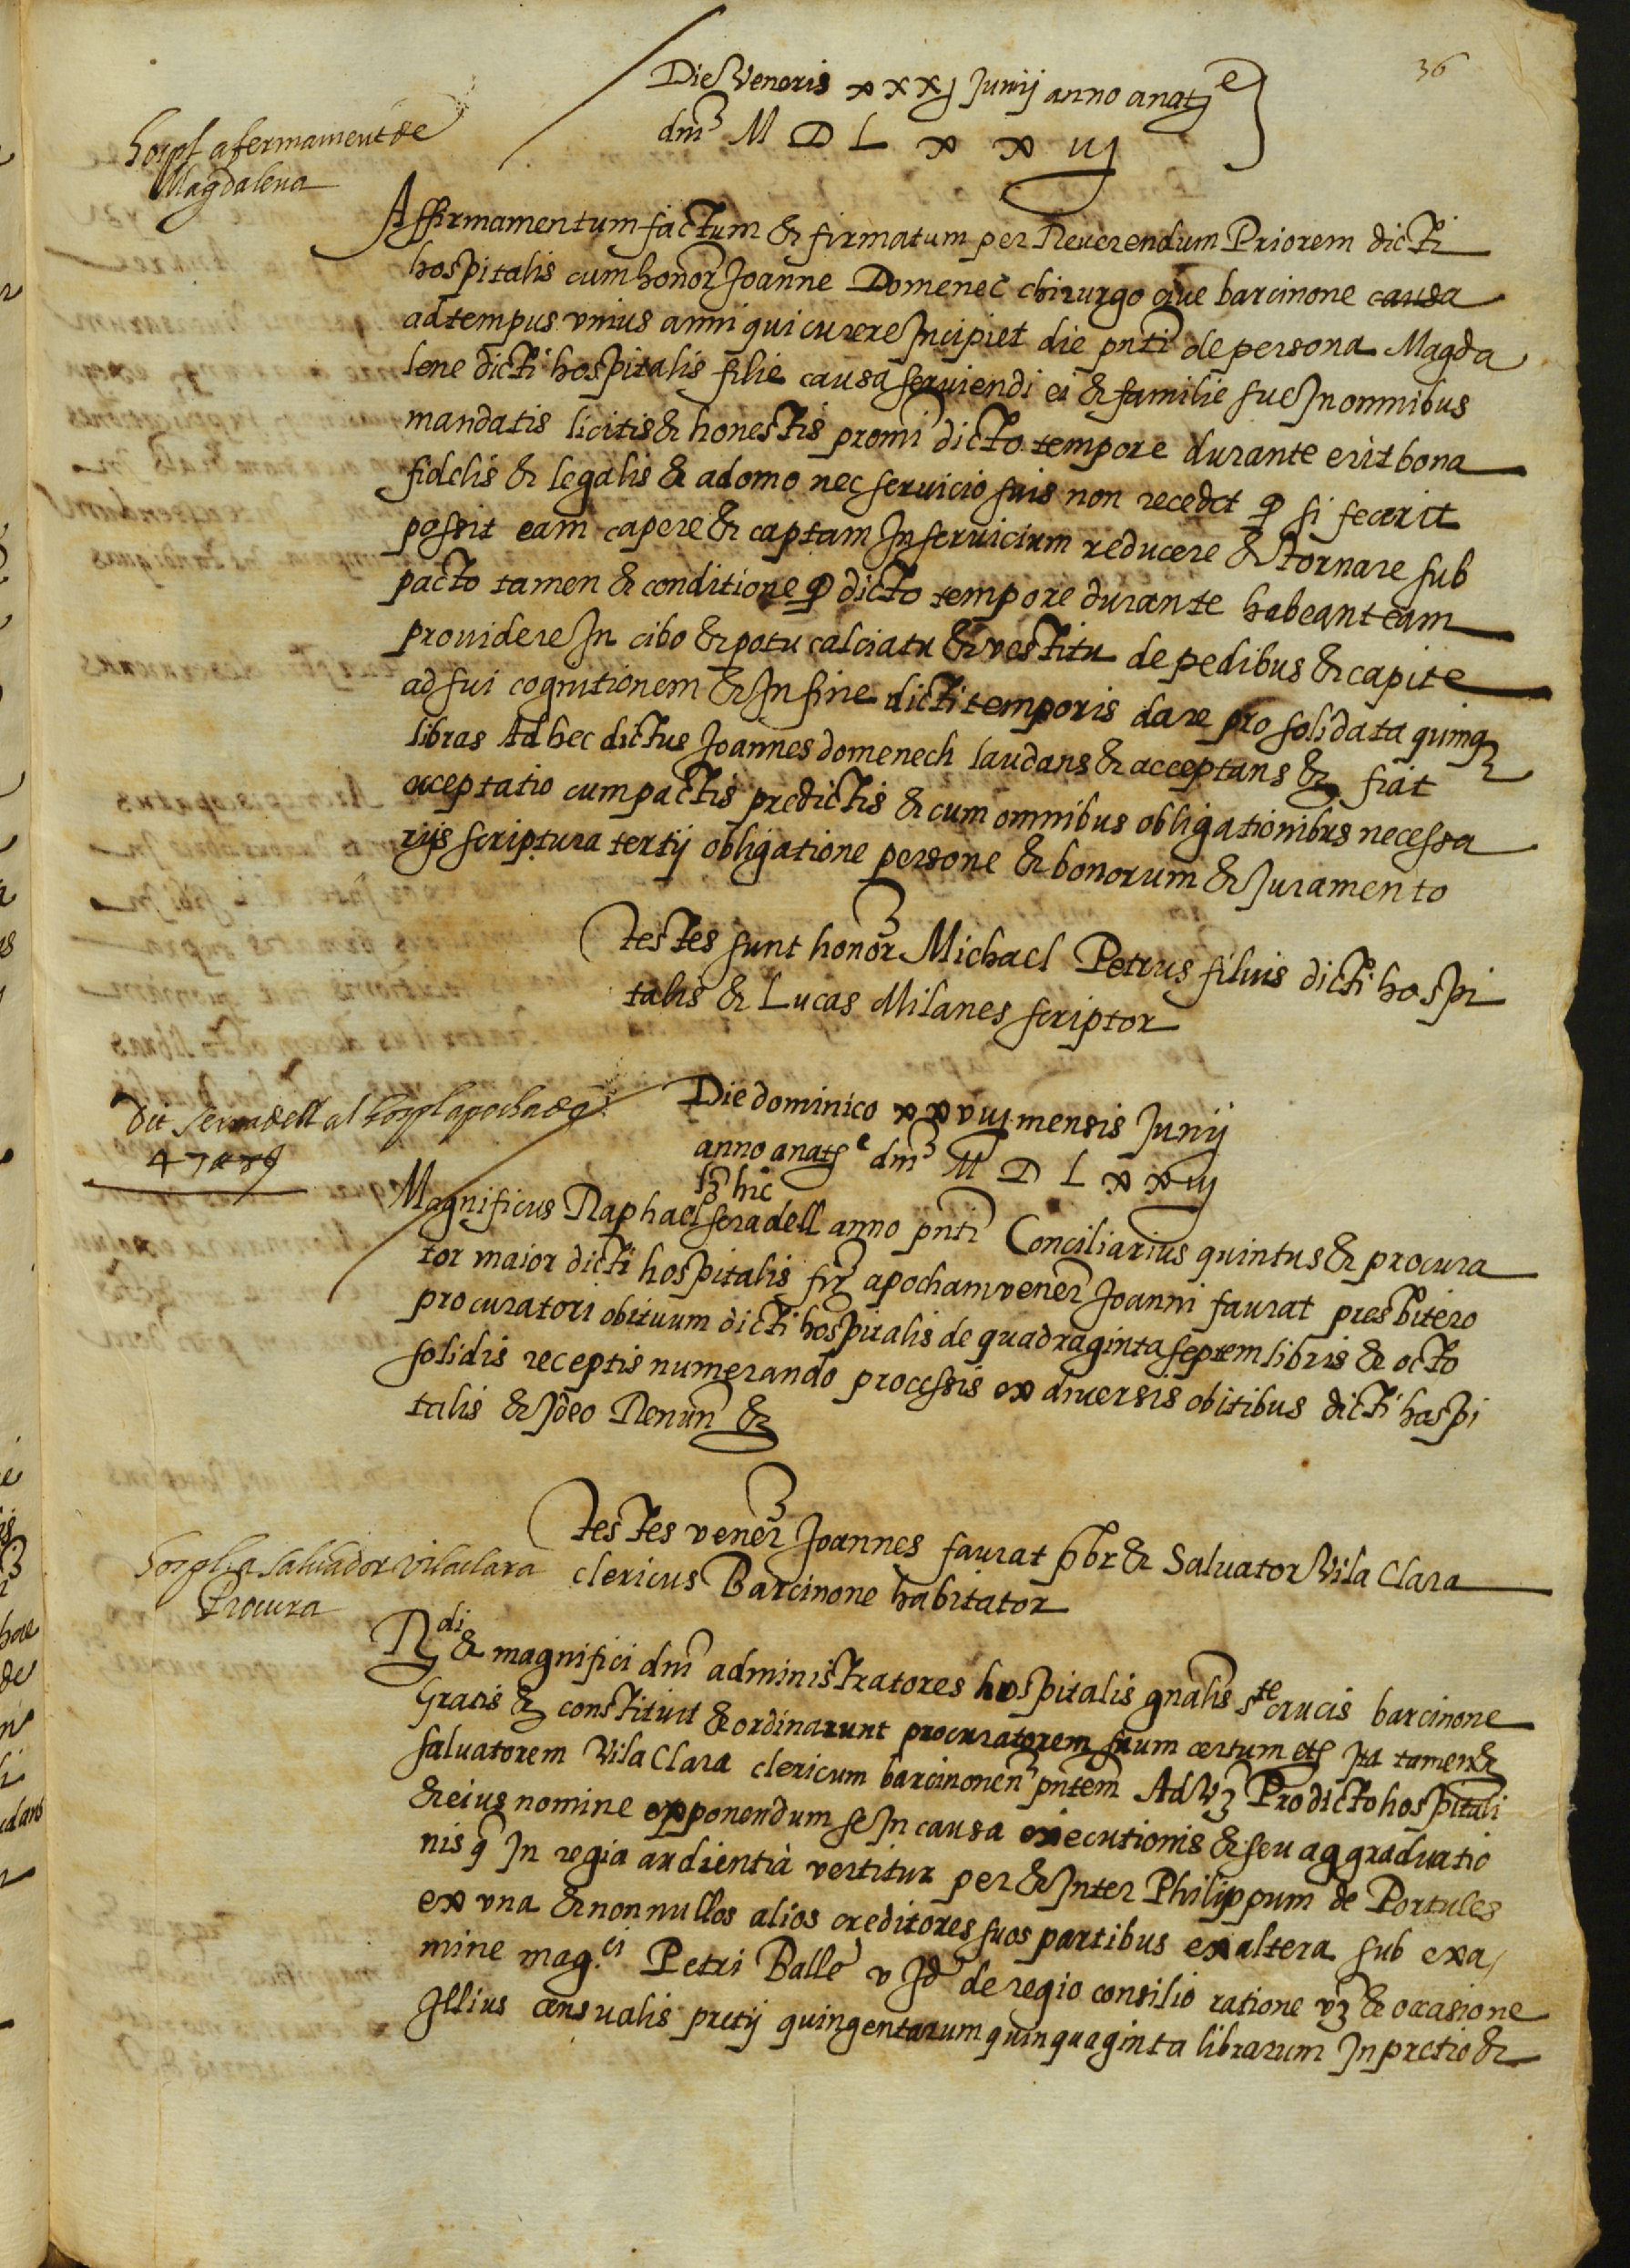 36
Die Veneris xxxj Junij anno anatᵉ
dni M D L x x iij
hospl afermament de
Magdalena
Affirmamentum factum & firmatum per Reuerendum Priorem dicti
hospitalis cum honor Joanne Domenec chirurgo ciue barcinone causa
ad tempus vnius anni qui currere Incipiet die pnti de persona Magda
lene dicti hospitalis filie causa seruiendi ei & familie sue In omnibus
mandatis licitis & honestis promi dicto tempore durante erit bona
fidelis & legalis & a domo nec seruicio suis non recedet q si fecerit
possit eam capere & captam In seruicium reducere & tornare sub
pacto tamen & conditione q dicto tempore durante habeant eam
prouidere In cibo & potu calciatu & vestitu de pedibus & capite
ad sui cognitionem & In fine dicti temporis dare pro solidata quinq
libras Ad hec dictus Joannes domenech laudans & acceptans & fiat
acceptatio cum pactis predictis & cum omnibus obligationibus necessa
rijs scriptura tertij obligatione persone & bonorum & Juramento
testes sunt honor Michael Petrus filius dicti hospi
talis & Lucas Milanes scriptor
Die dominico xxviij mensis Junij
anno anatᵉ dni M D L x x iij
dit serradell al hospl apocha de
47
lz hic
Magnificus Raphael seradell anno pnti Conciliarius quintus & procura
tor maior dicti hospitalis fir apocham vener Joanni faurat presbitero
procuratori obituum dicti hospitalis de quadraginta septem libris & octo
solidis receptis numerando processis ex diuersis obitibus dicti hospi
talis & Ideo Renun &
testes vener Joannes faurat pbr & Saluator Vila Clara
clericus Barcinone habitator
hospl a saluador vilaclara
Procura
Rdi & magnifici dni administratores hospitalis gnalis ste crucis barcinone
Gratis & constituit & ordinarunt procuratorem suum certum etc Ita tamen &
saluatorem Vila Clara clericum barcinonen pntem Ad vz Pro dicto hospitali
& eius nomine opponendum se In causa executionis & seu aggraduatio
nis q In regia audientia vertitur per & Inter Philippum de Portules
ex vna & nonnullos alios creditores suos partibus ex altera sub exa
mine mag.ci Petri Balle v Jd de regio consilio ratione vz & occasione
Illius censualis pretij quingentarum quinquaginta librarum In pretio &